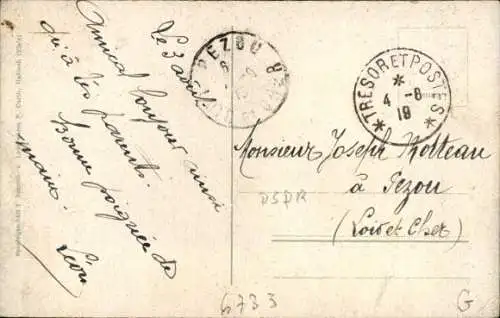 Le 3 août.
Amical bonjour ainsi
qu'à tes parents.
Bonne poignée de
mains.
Léon
PEZOU
TRESOR ET POSTES
4 -8
18
Monsieur Joseph Motteau
à Pezou
(Loir et Cher)
6733
G